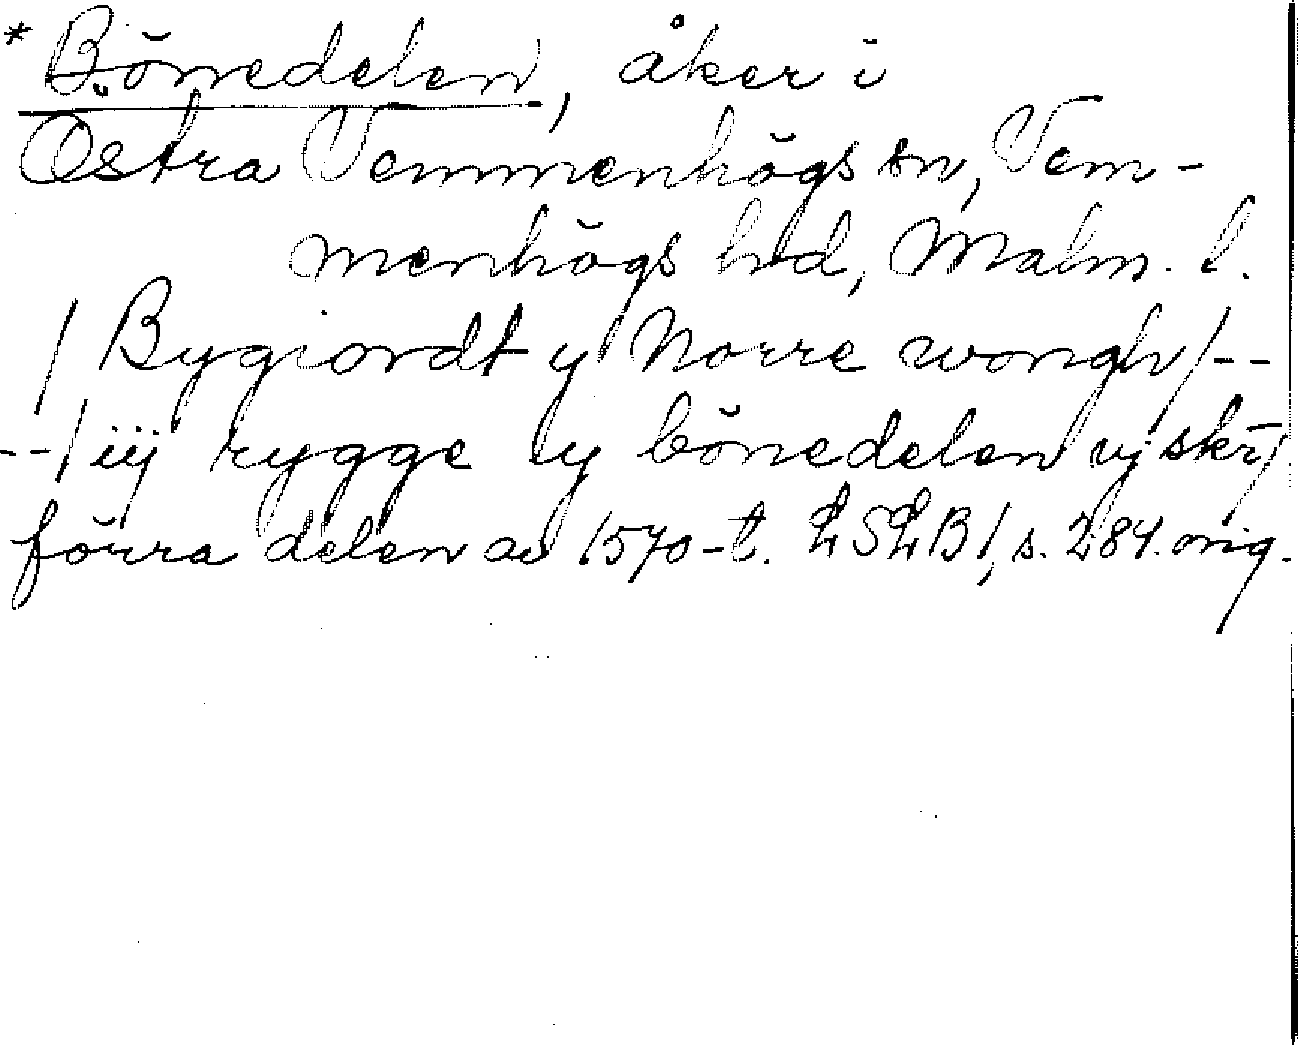 * Bönedelen, åker i
Östra Vemmenhögs sn, Vem-
menhögs hd, Malm. l.
/ Bygiordt y Norre wongh/--
--/ iij rygge y bönedelen vj skr/
förra delen av 1570-t. LSLB 1, s. 284. orig.